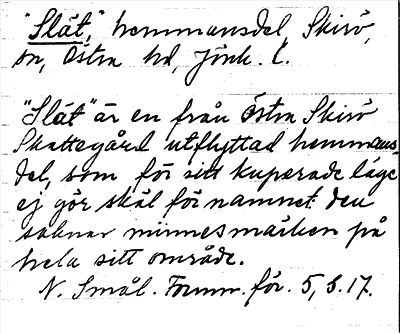 "Slät," hemmansdel, Skirö
sn, Östra hd, Jönk. l.
"Slät" är en från Östra Skirö
Skattegård utflyttad hemmans-
del, som för sitt kuperade läge
ej gör skäl för namnet. Den
saknar minnesmärken på
hela sitt område.
N. Smål. Fornm. för. 5, s. 17.